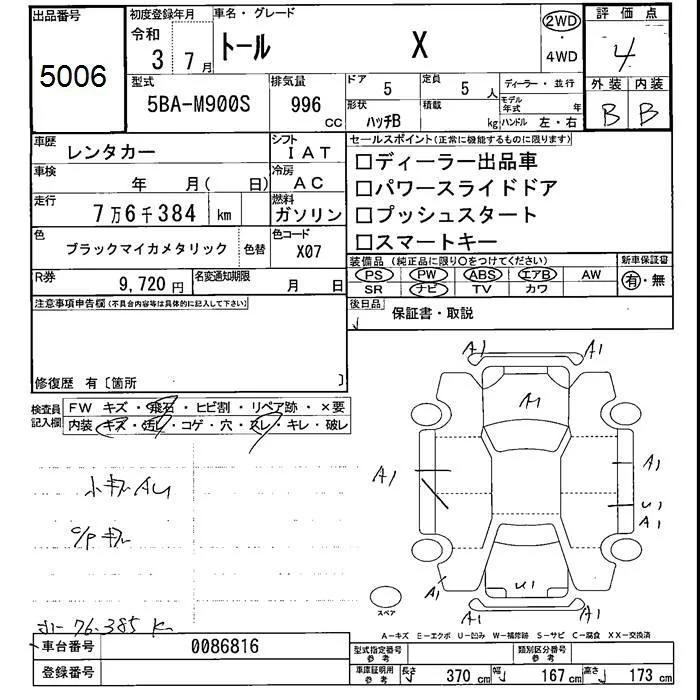 出品番号
5006
初度登録年月
令和
3 7月
車名・グレード
トール X
2WD
・
4WD
評価点
4
外装 内装
B B
型式
5BA-M900S
排気量
996
CC
ドア
5
定員
5人
ディーラー・並行
形状
ハッチB
積載
kg
モデル年式 年
ハンドル 左・右
車歴
レンタカー
シフト
IAT
車検
年 月( 日)
冷房
AC
走行
7万6千384 km
燃料
ガソリン
色
ブラックマイカメタリック
色替
色コード
X07
R券
9,720円
名変通知期限
月 日
セールスポイント(正常に機能するものに限ります)
□ディーラー出品車
□パワースライドドア
□プッシュスタート
□スマートキー
装備品(純正品に限り○をつけてください)
PS PW ABS エアB AW
SR ナビ TV カワ
新車保証書
有・無
後日品
保証書・取説
注意事項申告欄(不具合内容等は具体的に記入して下さい)
修復歴 有〔箇所 〕
検査員記入欄
FW キズ・飛石・ヒビ割・リペア跡・×要
内装 キズ・汚レ・コゲ・穴・スレ・キレ・破レ
A1 A1
A1
A1
A1
U1
A1
A1
U1
A1 A1
スペア
A-キズ E-エクボ U-凹み W-補修跡 S-サビ C-腐食 XX-交換済
76.385 K
車台番号
0086816
登録番号
型式指定番号
参考
類別区分番号
参考
車庫証明用
参考
長さ 370 cm 幅 167 cm 高さ 173 cm